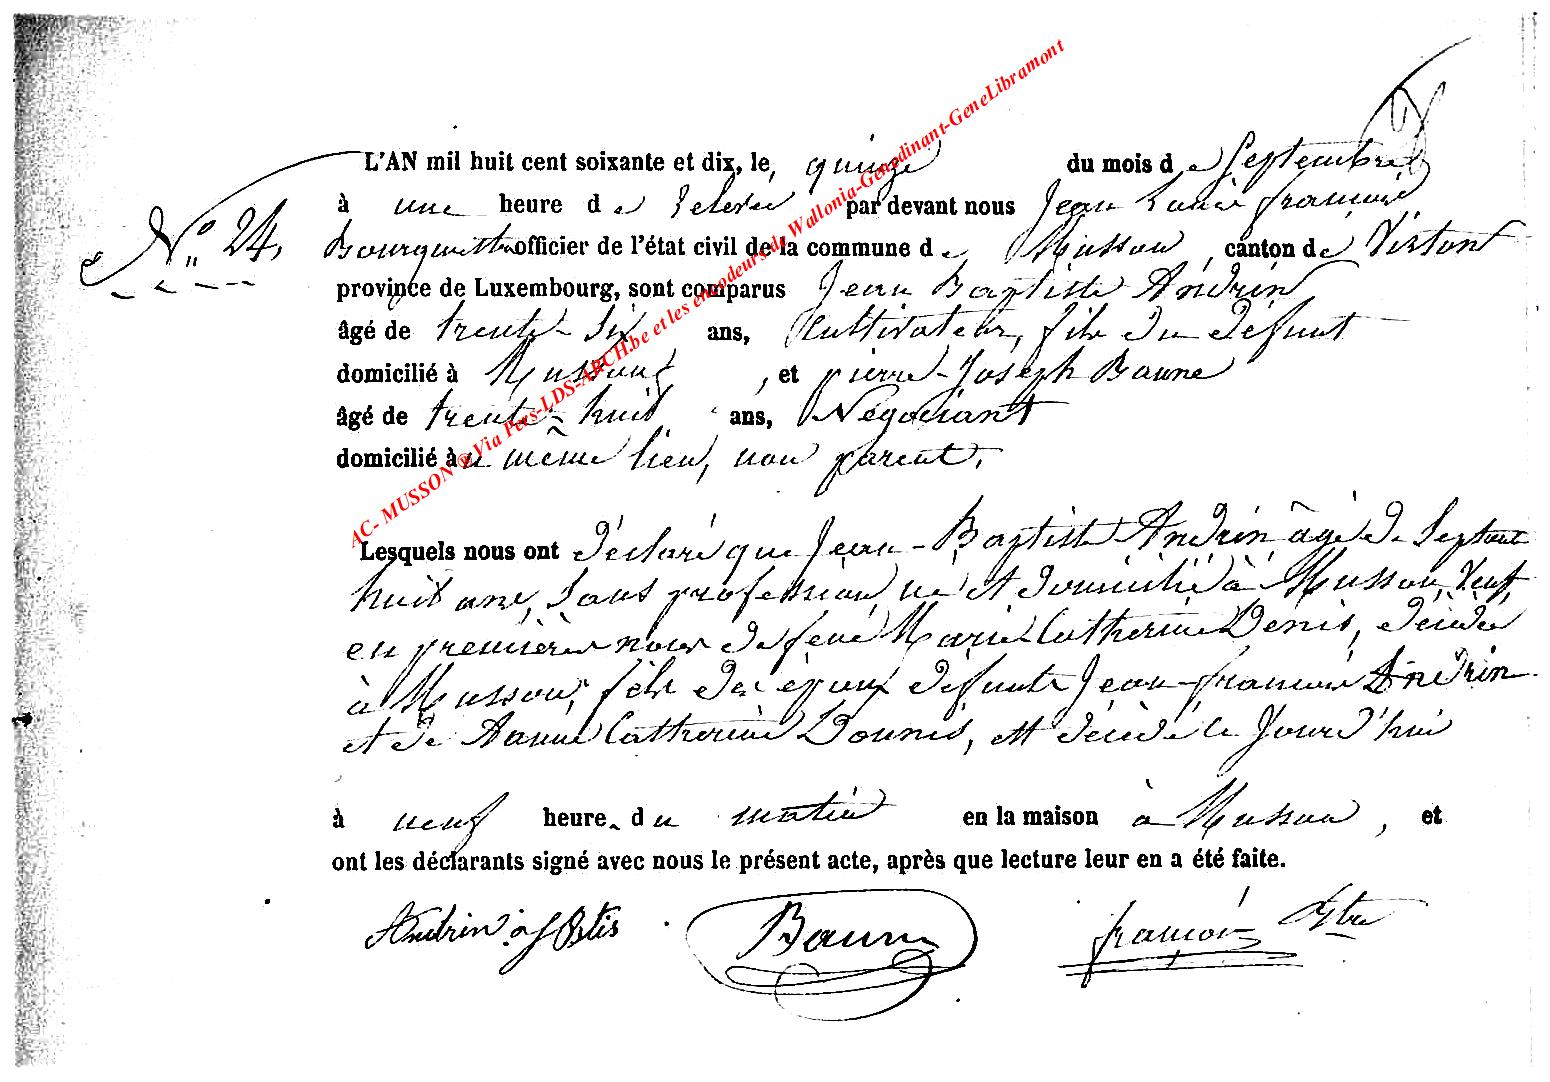 L'AN mil huit cent soixante et dix, le, quinze du mois de Septembre
N° 24, à une heure de relevée par devant nous Jean Louis françois
Bourguet officier de l'état civil de la commune de Musson, canton de Virton
province de Luxembourg, sont comparus Jean Baptiste Andrin
âgé de trente-six ans, Cultivateur, fils du défunt
domicilié à Musson, et pierre-Joseph Baune
âgé de trente-huit ans, Négociant
domicilié au même lieu, non parent.
Lesquels nous ont déclaré que Jean-Baptiste Andrin âgé de Septante
huit ans, sans profession, né et domicilié à Musson, Veuf
en premières noces de feue Marie Catherine Denis, décédée
à Musson, fils des époux défunts Jean-françois Andrin
et de Anne Catherine Dounis, est décédé ce Jourd'hui
à neuf heure du matin en la maison à Musson, et
ont les déclarants signé avec nous le présent acte, après que lecture leur en a été faite.
Andrin Btis Baune françois
AC- MUSSON ® Via Pers-LDS-ARCH.be et les encodeurs de Wallonia-Genedinant-GeneLibramont